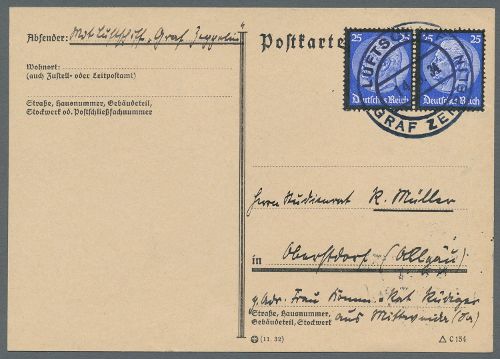 Absender: Mot Luftschiff „Graf Zeppelin"
Wohnort:
(auch Zustell- oder Leitpostamt)
Straße, Hausnummer, Gebäudeteil,
Stockwerk od. Postschließfachnummer
Postkarte
25 25
Deutsches Reich
25 25
Deutsches Reich
LUFTSCHIFF
GRAF ZEPPELIN
Herrn Studienrat R. Müller
in Oberstdorf (Allgäu)
p. Adr. Frau Komm.-Rat Rüdiger
Straße, Hausnummer,
Gebäudeteil, Stockwerk
aus Mittweida (Sa)
(11. 32)
C 154